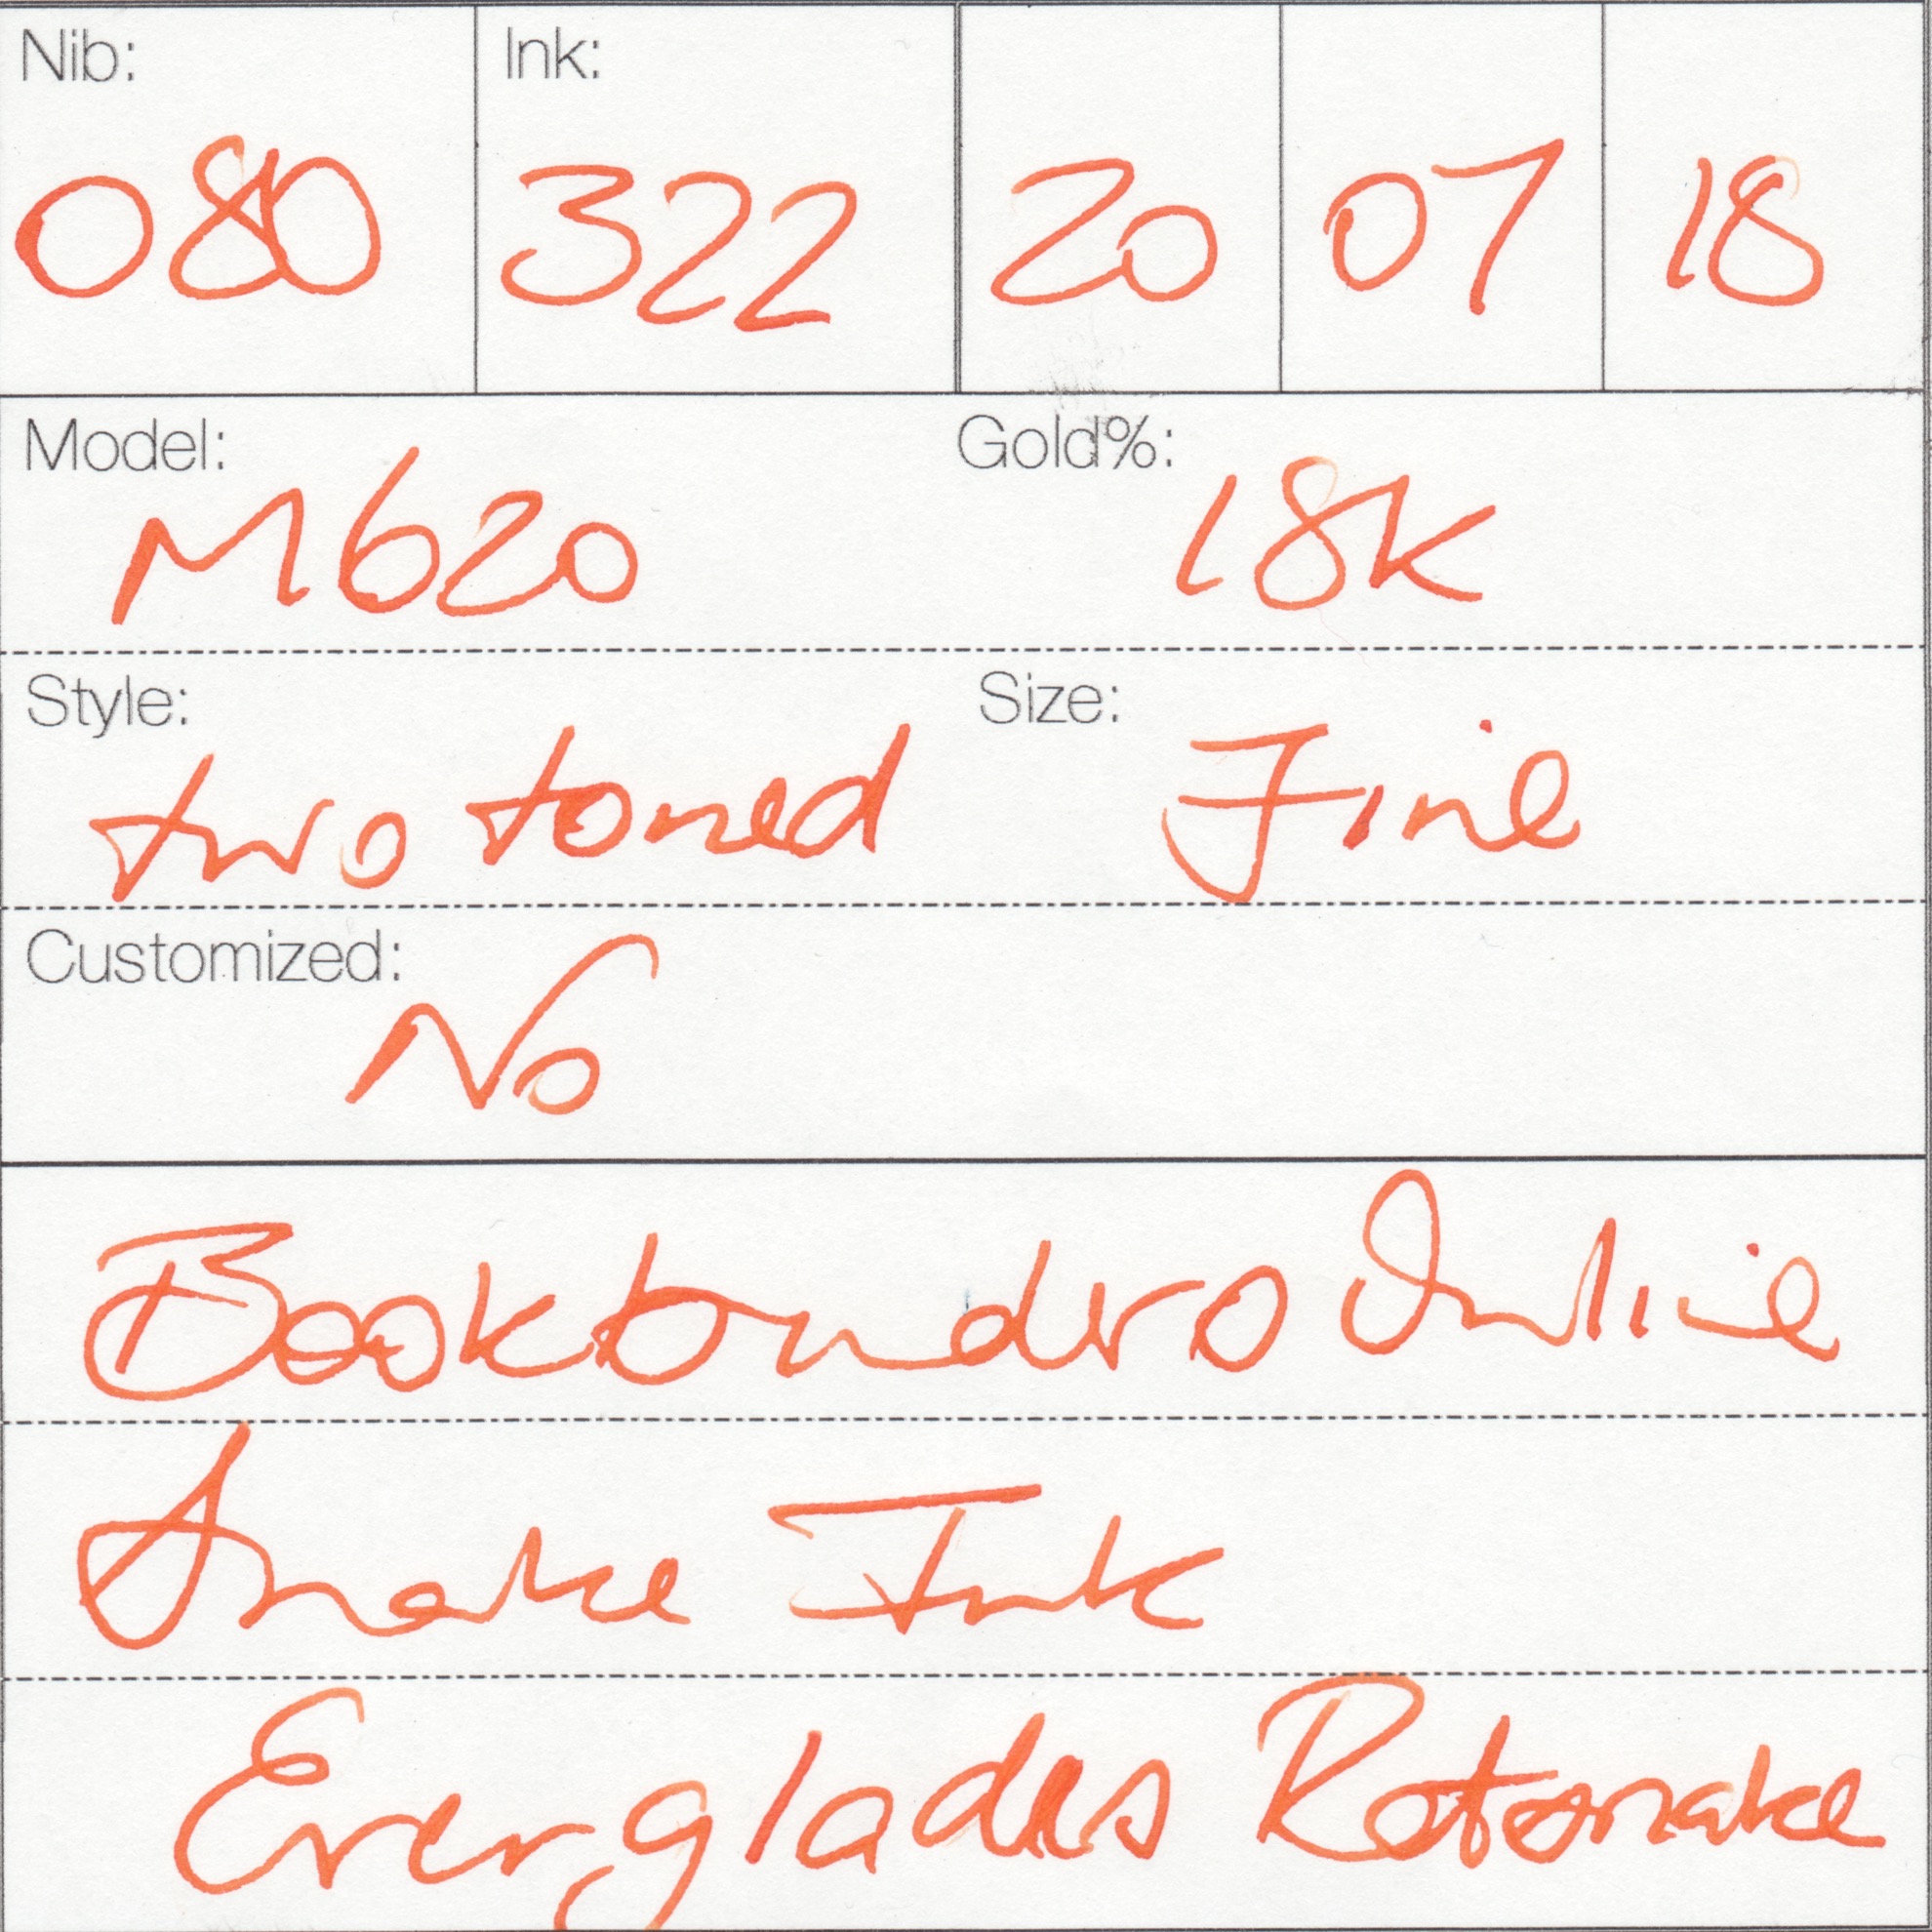 Nib: Ink:
080 322 20 07 18
Model: Gold%:
M620 18K
Style: Size:
two toned Fine
Customized:
No
Bookbinders Online
Snake Ink
Everglades Ratsnake